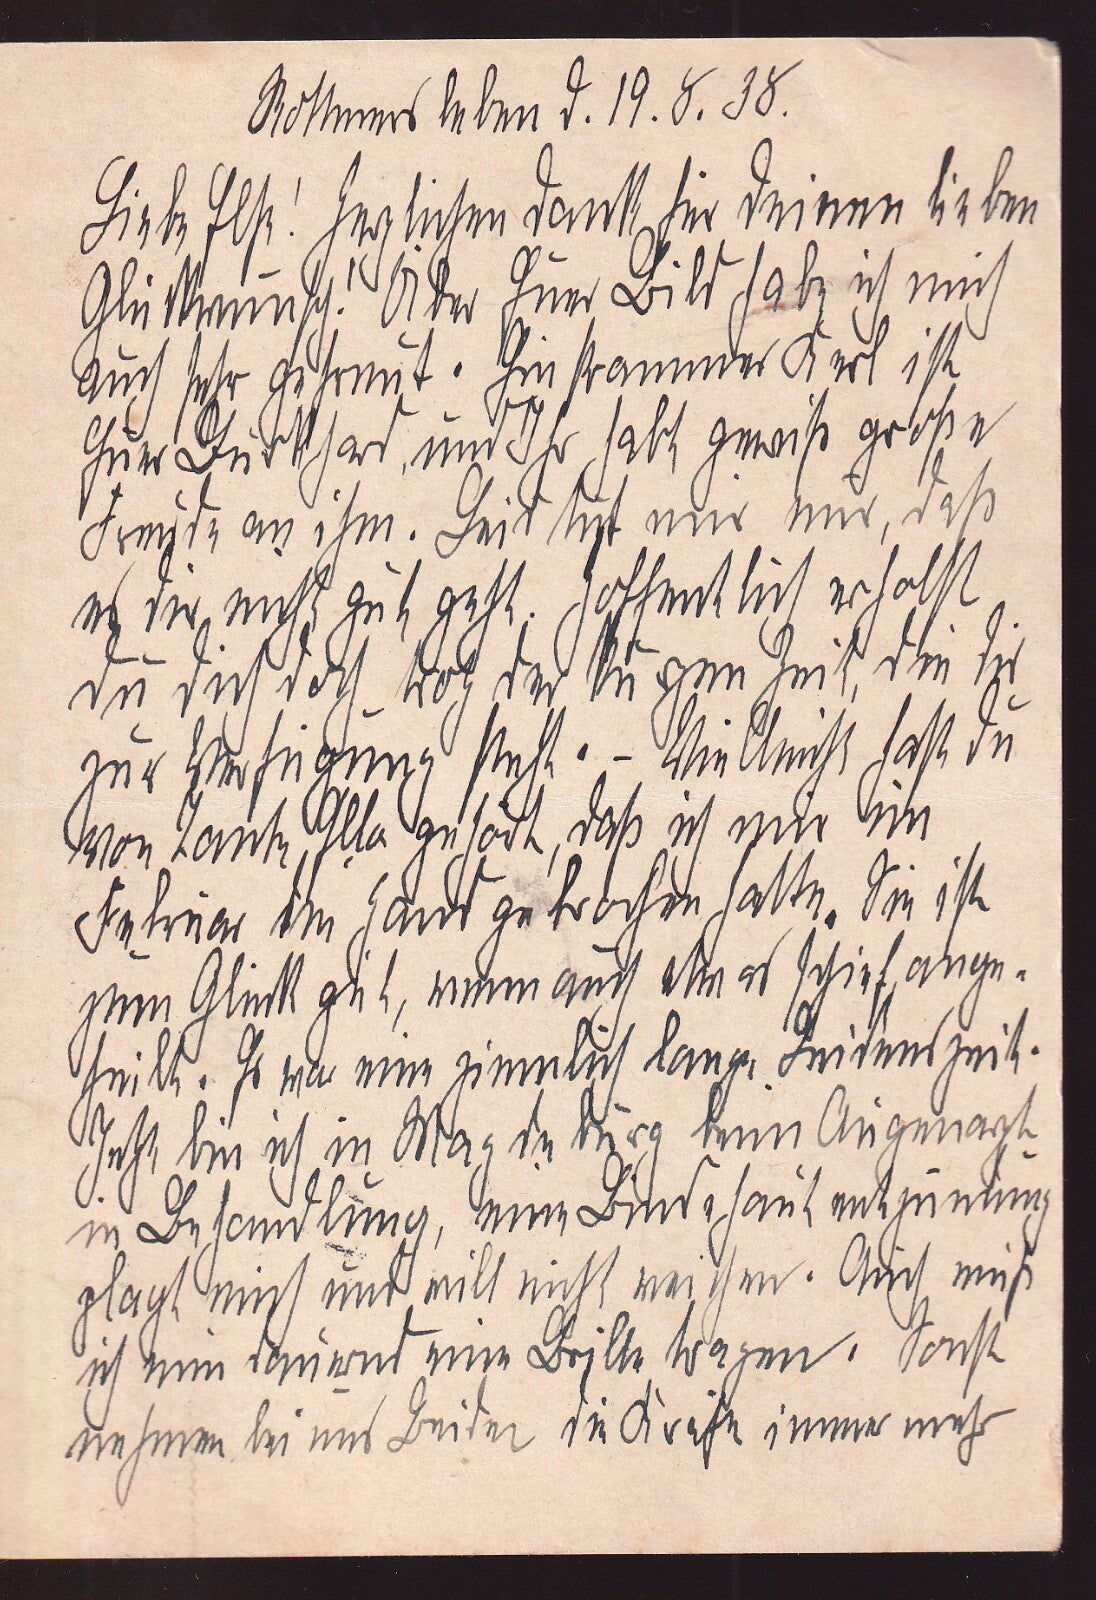 Rottmersleben d. 19. 8. 38.
Liebe Ilse! Herzlichen Dank für deinen lieben
Glückwunsch! Über Euer Bild habe ich mich
auch sehr gefreut. Ein strammer Kerl ist
Euer Burkhard, und Ihr habt gewiß große
Freude an ihm. Leid tut mir nur, daß
es dir nicht gut geht. Hoffentlich erholst
du dich doch trotz der kurzen Zeit, die dir
zur Verfügung steht. - Vielleicht hast du
von Tante Ella gehört, daß ich mir im
Februar die Hand gebrochen hatte. Sie ist
zum Glück gut, wenn auch etwas schief, ange-
heilt. Es war eine ziemlich lange Leidenszeit.
Jetzt bin ich in Magdeburg beim Augenarzt
in Behandlung, eine Bindehautentzündung
plagt mich und will nicht weichen. Auch muß
ich nun dauernd eine Brille tragen. Sonst
nehmen bei uns Beiden die Kräfte immer mehr